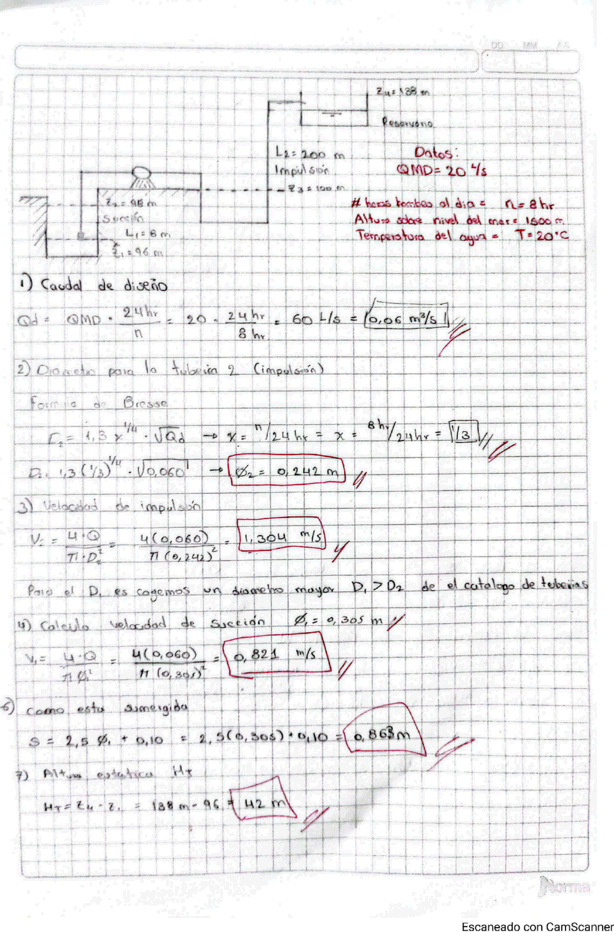 DD MM AA
Z4 = 138 m
Reservorio
L2 = 200 m
Impulsión
Z3 = 100 m
Z2 = 98 m
Succión
L1 = 8 m
Z1 = 96 m
Datos:
QMD = 20 l/s
# horas bombeo al dia = n = 8 hr
Altura sobre nivel del mar = 1500 m
Temperatura del agua = T = 20°C
1) Caudal de diseño
Qd = QMD · 24 hr / n = 20 · 24 hr / 8 hr = 60 L/s = 0,06 m³/s
2) Diametro para la tuberia 2 (impulsión)
Formula de Bresse
D2 = 1,3 x^1/4 · √Qd → x = n/24 hr = x = 8 hr/24 hr = 1/3
D2 = 1,3 (1/3)^1/4 · √0,060 → Ø2 = 0,242 m
3) Velocidad de impulsión
V2 = 4·Q / π·D2² = 4(0,060) / π (0,242)² = 1,304 m/s
Para el D1 es cogemos un diametro mayor D1 > D2 de el catalogo de tuberias
4) Calculo velocidad de succión Ø1 = 0,305 m
V1 = 4·Q / π Ø1² = 4(0,060) / π (0,305)² = 0,821 m/s
6) como esta sumergida
S = 2,5 Ø1 + 0,10 = 2,5(0,305) + 0,10 = 0,863 m
7) Altura estatica HT
HT = Z4 - Z1 = 138 m - 96 = 42 m
Norma
Escaneado con CamScanner